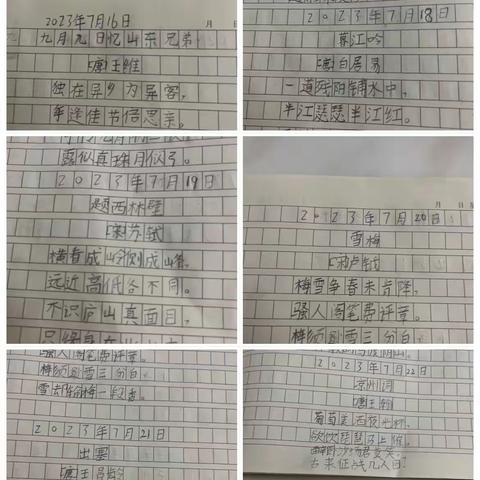 2023年7月16日
月 日
九月九日忆山东兄弟
[唐]王维
独在异乡为异客,
年逢佳节倍思亲。
2023年7月18日
暮江吟
[唐]白居易
一道残阳铺水中,
半江瑟瑟半江红。
露似真珠月似弓。
2023年7月19日
题西林壁
[宋]苏轼
横看成岭侧成峰,
远近高低各不同。
不识庐山真面目,
月
2023年7月20日
雪梅
[宋]卢钺
梅雪争春未肯降,
骚人阁笔费评章。
梅须逊雪三分白,
骚人阁笔费评章。
梅须逊雪三分白,
雪却输梅一段香。
2023年7月21日
出塞
[唐]王昌龄
2023年7月22日
凉州词
[唐]王翰
葡萄美酒夜光杯,
欲饮琵琶马上催。
醉卧沙场君莫笑,
古来征战几人回?